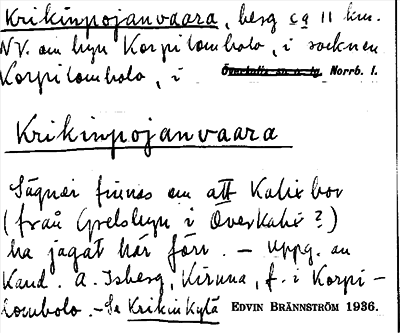 Krikinpojanvaara, berg ca 11 km.
NV. om byn Korpilombolo, i socknen
Korpilombolo, i Överkalix sn o. tg, Norrb. l.
Krikinpojanvaara
Sägner finnes om att Kalixbor
(från Grelsbyn i Överkalix?)
ha jagat här förr. – Uppg. av
Kand. A. Isberg, Kiruna, f. i Korpi-
lombolo. – Se Krikinkylä EDVIN BRÄNNSTRÖM 1936.